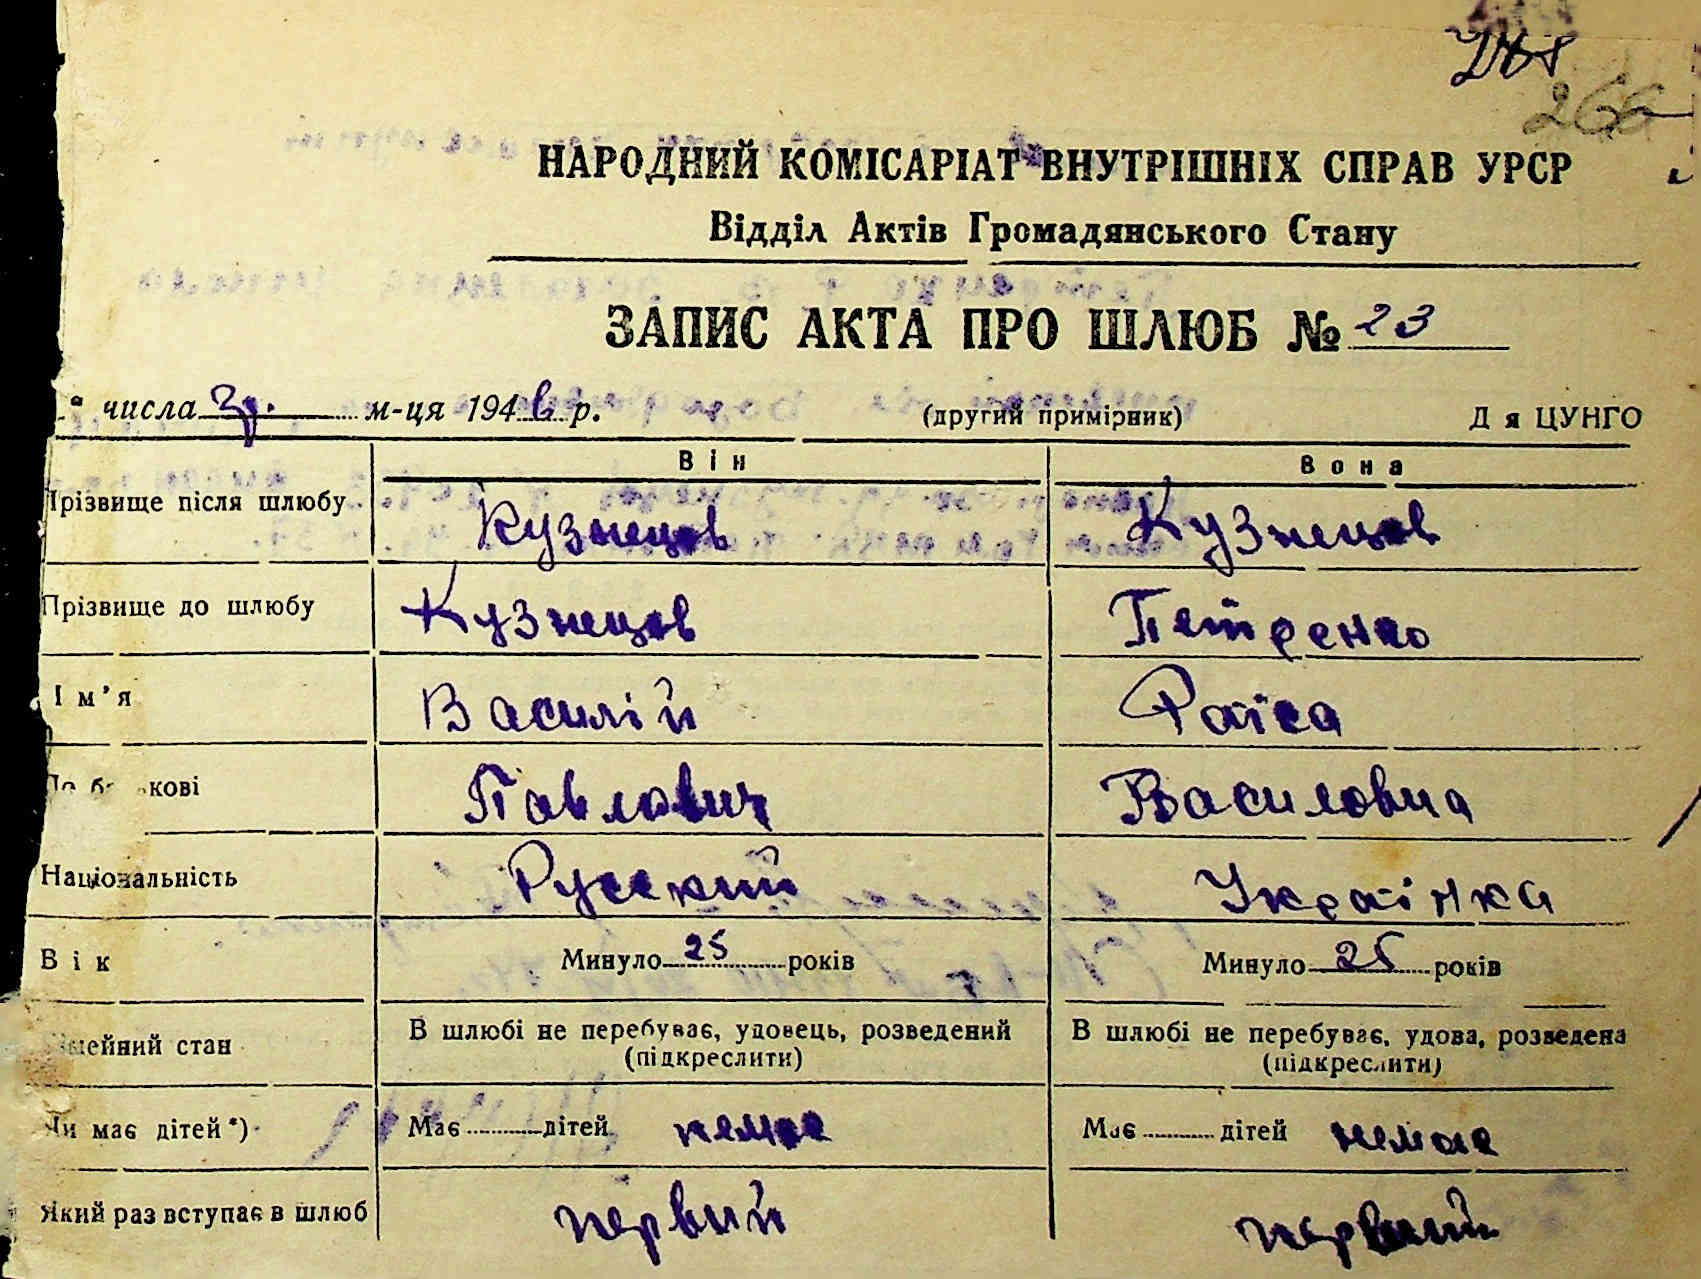 266
НАРОДНИЙ КОМІСАРІАТ ВНУТРІШНІХ СПРАВ УРСР
Відділ Актів Громадянського Стану
ЗАПИС АКТА ПРО ШЛЮБ № 23
числа м-ця 194 р.
(другий примірник)
Д я ЦУНГО
Він Вона
Прізвище після шлюбу Кузнецов Кузнецов
Прізвище до шлюбу Кузнецов Петренко
Ім'я Василій Раїса
По б кові Павлович Василовна
Національність Русский Українка
Вік Минуло 25 років Минуло 25 років
мейний стан В шлюбі не перебуває, удовець, розведений (підкреслити) В шлюбі не перебуває, удова, розведена (підкреслити)
Чи має дітей*) Має дітей немає Має дітей немає
Який раз вступає в шлюб первий первий